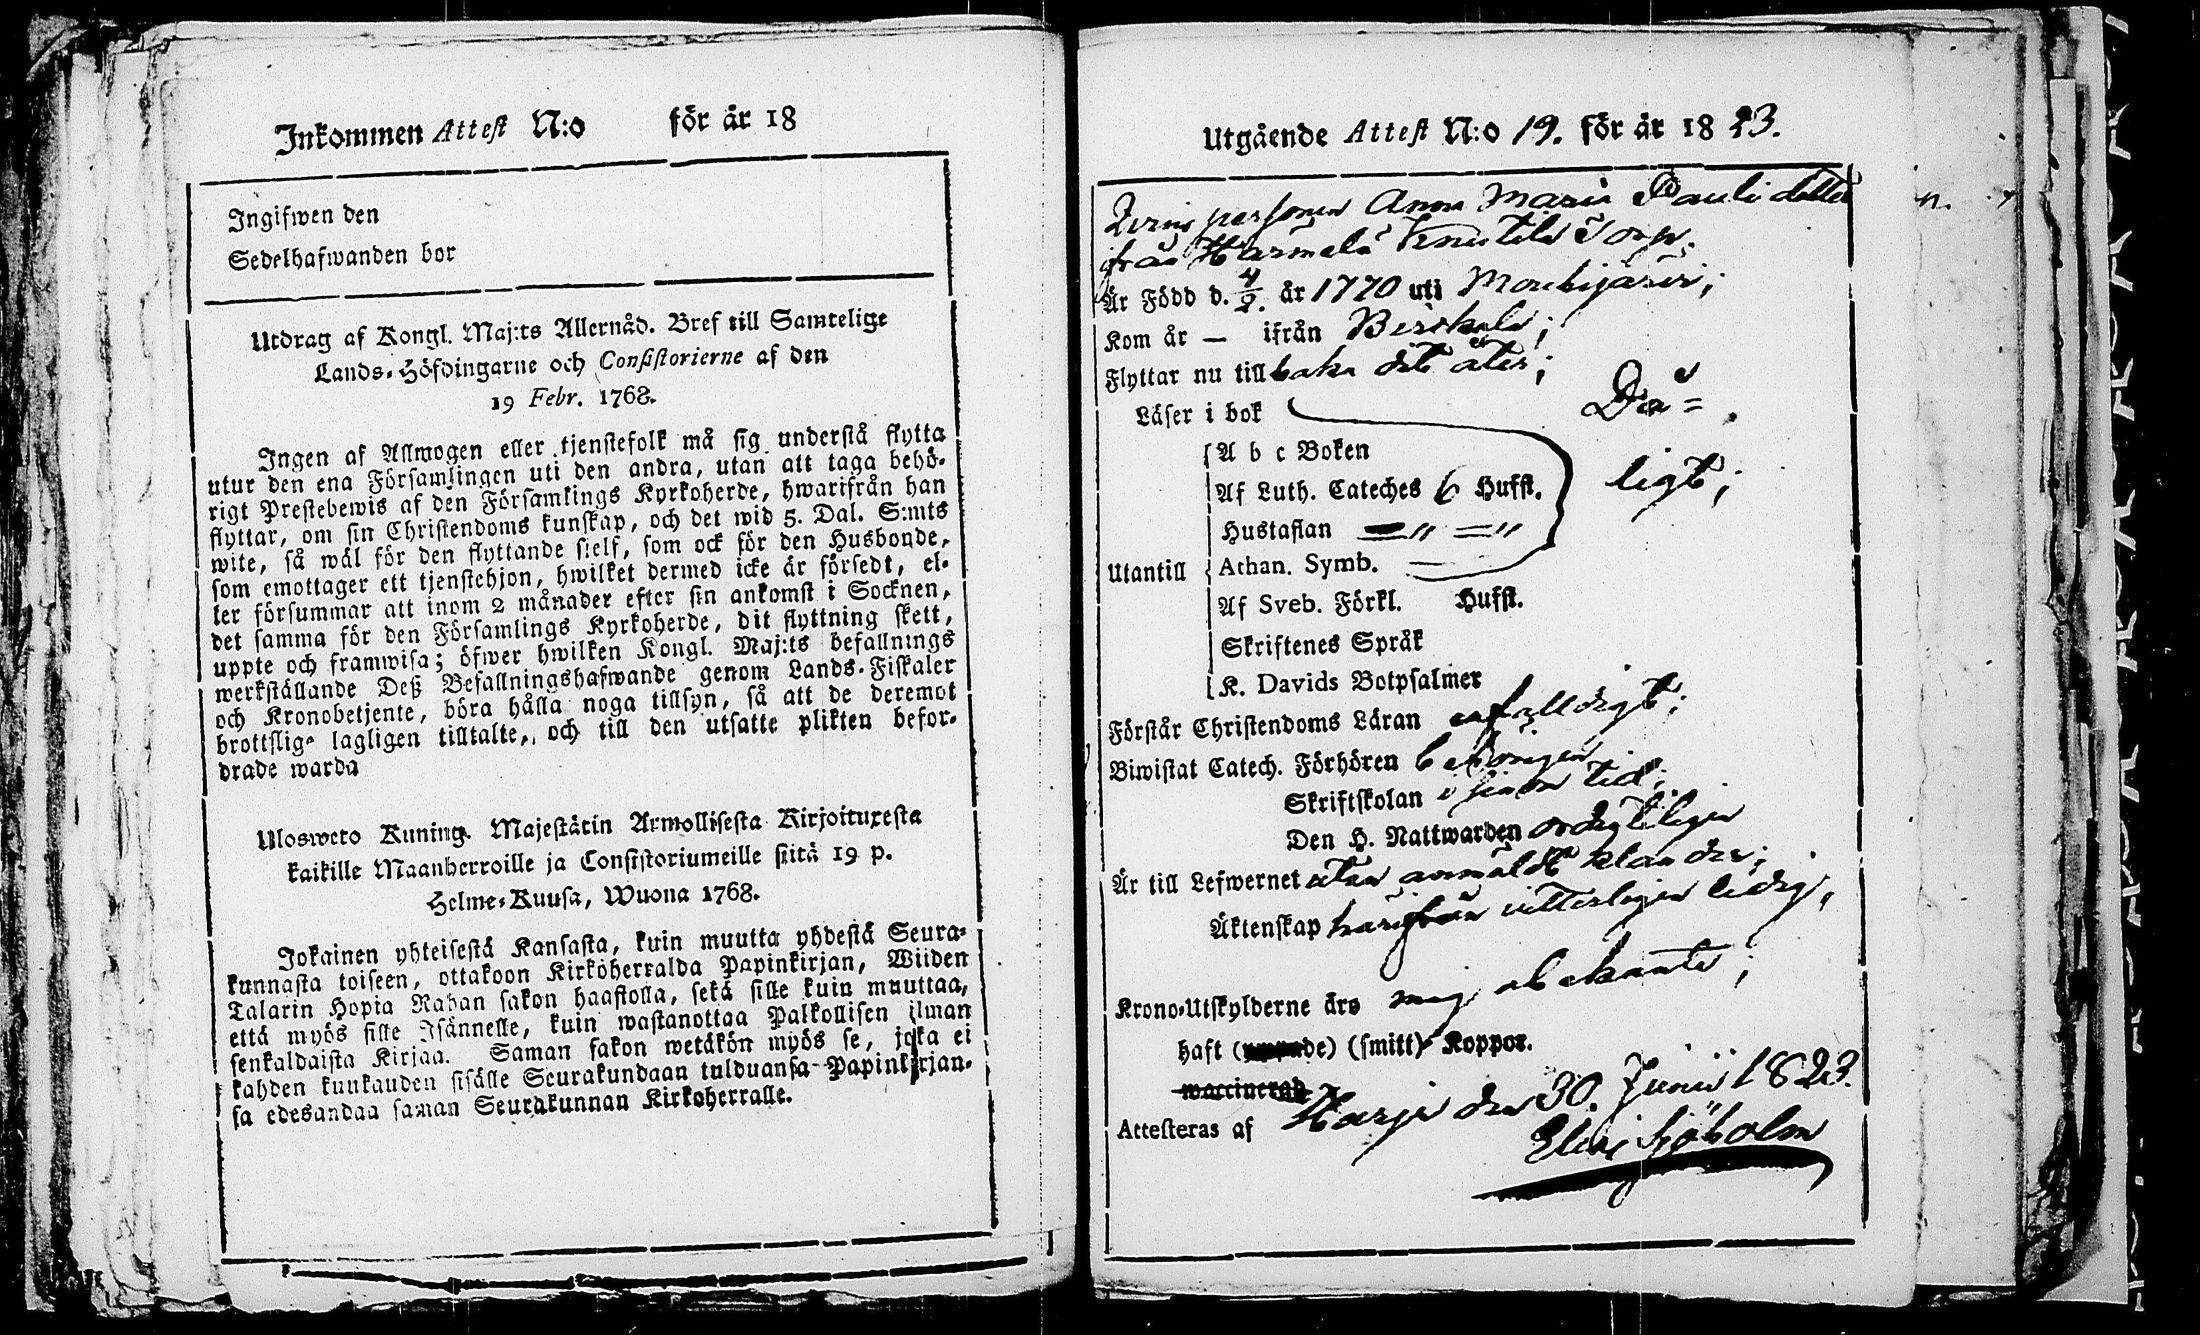 Inkommen Attest N:o för år 18
Ingifwen den
Sedelhafwanden bor
Utdrag af Kongl. Maj:ts Allernåd. Bref till Samtelige
Lands-Höfdingarne och Consistorierne af den
19 Febr. 1768.
Ingen af Allmogen eller tjenstefolk må sig understå flytta
utur den ena Församlingen uti den andra, utan att taga behö-
rigt Prestebewis af den Församlings Kyrkoherde, hwarifrån han
flyttar, om sin Christendoms kunskap, och det wid 5. Dal. S:mts
wite, så wäl för den flyttande sielf, som ock för den Husbonde,
som emottager ett tjenstehjon, hwilket dermed icke är försedt, el-
ler försummar att inom 2 månader efter sin ankomst i Socknen,
det samma för den Församlings Kyrkoherde, dit flyttning skett,
uppte och framwisa; öfwer hwilken Kongl. Maj:ts befallnings
werkställande Deß Befallningshafwande genom Lands-Fiskaler
och Kronobetjente, böra hålla noga tillsyn, så att de deremot
brottslige lagligen tilltalte, och till den utsatte plikten befor-
drade warda
Ulosweto Kuning. Majestätin Armollisesta Kirjoituxesta
kaikille Maanherroille ja Consistoriumeille siitä 19 p.
Helme-Kuusa, Wuona 1768.
Jokainen yhteisestä Kansasta, kuin muutta yhdestä Seura-
kunnasta toiseen, ottakoon Kirkoherralda Papinkirjan, Wiiden
Talarin Hopia Rahan sakon haastolla, sekä sille kuin muuttaa,
että myös sille Isännelle, kuin wastanottaa Palkollisen ilman
senkaldaista Kirjaa. Saman sakon wetäkön myös se, joka ei
kahden kuukauden sisälle Seurakundaan tulduansa Papinkirjan-
sa edesandaa saman Seurakunnan Kirkoherralle.
Utgående Attest N:o 19. för år 1823.
personen Anna Maria Pauli dotter
från Harmala Knutila Torp.
Är Född d. 4/2. år 1770 uti Mouhijärvi;
Kom år — ifrån Birkala;
Flyttar nu till baka dit åter;
Läser i bok Då=
A b c Boken
Af Luth. Cateches 6 Hufst. ligt;
Hustaflan — " = "
Utantill Athan. Symb. —
Af Sveb. Förkl. Hufst.
Skriftenes Språk
K. Davids Botpsalmer
Förstår Christendoms Läran enfalldigt;
Biwistat Catech. Förhören behörigen
Skriftskolan i sinom tid;
Den H. Nattwarden ordentligen
Är till Lefwernet utan anmäldt klander;
Äktenskap härifrån vitterligen ledig,
Krono-Utskylderne äro mig obekante;
haft (de) (smitt) Koppor.
waccinerad
Attesteras af Harju den 30. Junii 1823.
Elias Sjöholm